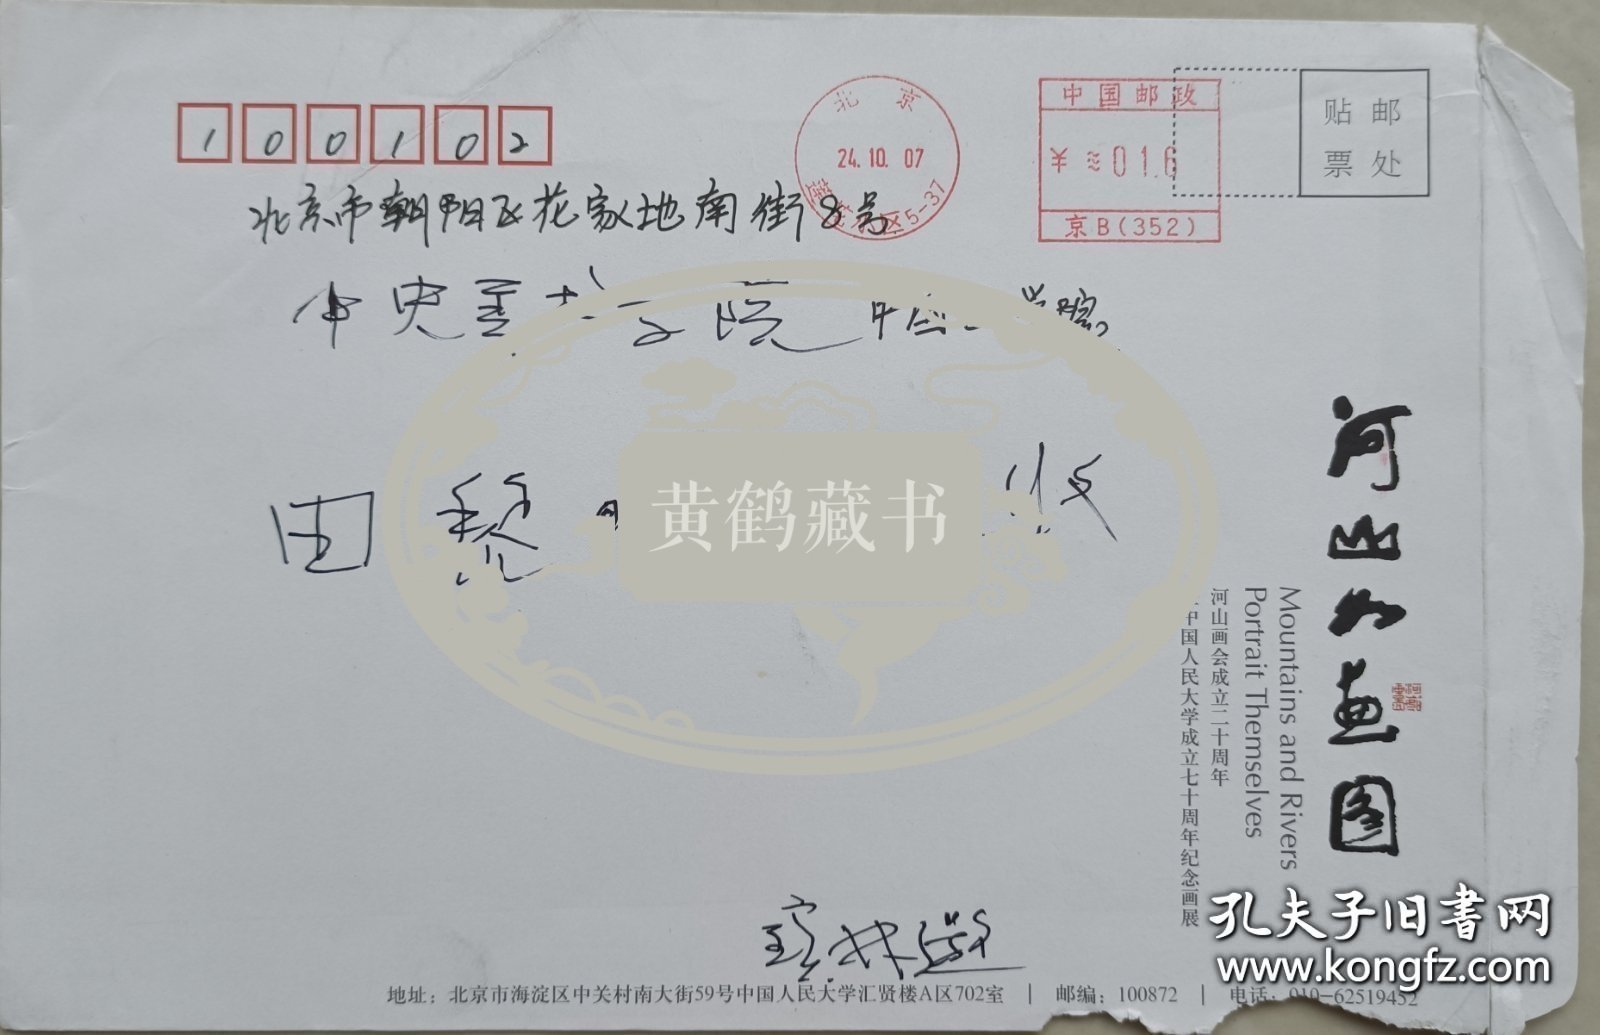 100102
北京市朝阳区花家地南街8号
中央美术学院 中国
田黎 收
北京
24.10.07
区5-37
中国邮政
¥≈01.6
京B(352)
贴邮
票处
黄鹤藏书
河山如画图
Mountains and Rivers
Portrait Themselves
河山画会成立二十周年
中国人民大学成立七十周年纪念画展
孔夫子旧书网
www.kongfz.com
地址：北京市海淀区中关村南大街59号中国人民大学汇贤楼A区702室 | 邮编：100872 | 电话：010-62519452